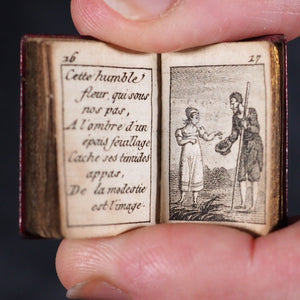 26
Cette humble
fleur, qui sous
nos pas,
A l'ombre d'un
épais feuillage
Cache ses timides
appas,
De la modestie
est l'image.
27